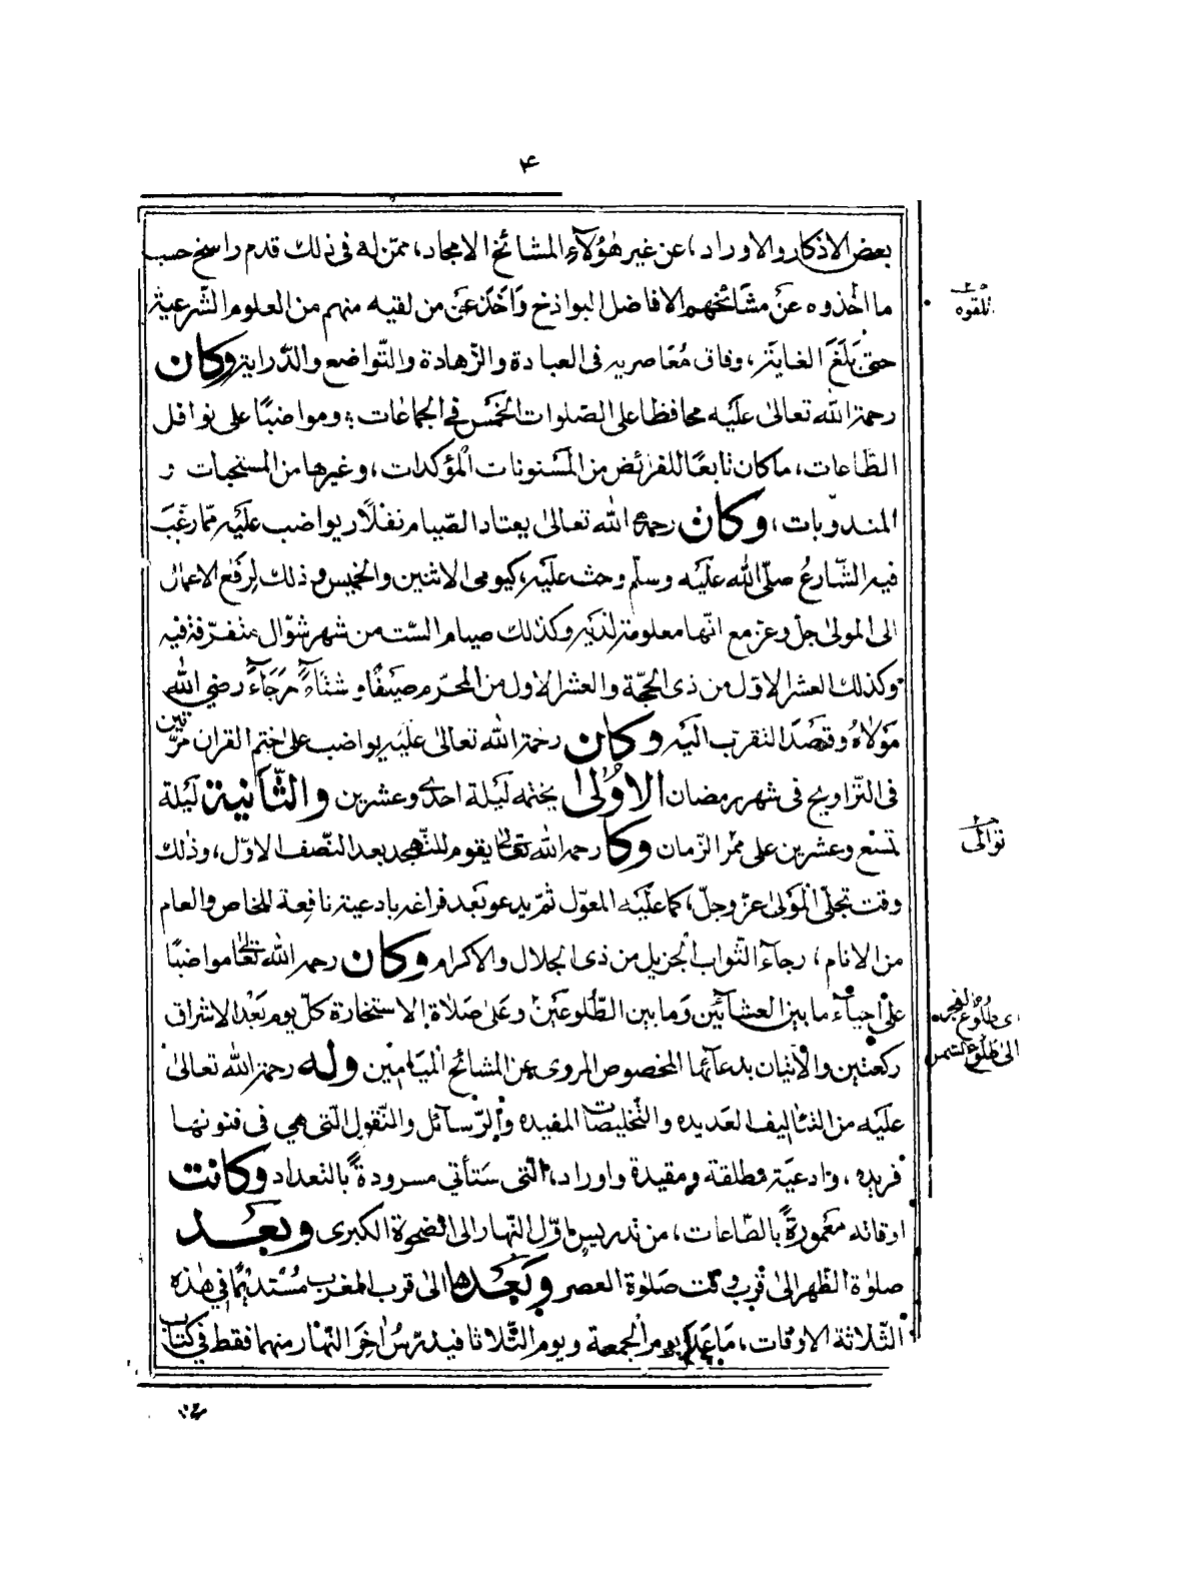 ۴
بعض الاذكار والاوراد، عن غير هٰؤلآءِ المشائخ الامجاد، ممّن له فى ذلك قدم راسخ حسب
ما اخذوه عنْ مشَائخهم الافاضل البواذخ وَاَخَذ عَن من لقيه منهم من العلوم الشّرعيّة
حتّٰى بَلَغَ الغاية، وفاق مُعَاصريه فى العبادة والزّهادة والتّواضع والدّراية وكان
رحمة الله تعالىٰ عليَه محافظا على الصّلوات الخمْس فى الجماعات؛ ومواضبًا على نوافل
الطّاعات، ما كان تابعًا للفرائض من المَسْنونات المؤكدات، وغيرها من المستحبات و
المندوبات، وكان رحمه الله تعالىٰ يعتاد الصّيام نفلًا ويواضب عليَه ممّا رغّبَ
فيه الشّارعُ صلّى الله عليَه وسلّم وحث عليَه، كيومى الاثنين والخميس وذلك لِرفع الاعمال
الى المولىٰ جلّ وعزّ مع انّها معلومة لديَه وكذلك صيام السّت من شهر شوّال متفرّقة فيه
وكذلك العشر الاوّل من ذى الحجّة والعشر الاول من المحرّم صيَفًا وشتآءً مرَجَآءً رضي الله
مَوْلاهُ وقصَدًا التقرّب اليَه وكان رحمة الله تعالىٰ عليَه يواضب علىٰ ختم القران مرّتين
فى التّراويح فى شهر رمضان الاُولىٰ يختمه ليَلة احدىٰ وعشرين والثّانية ليَلة
تسْع وعشرين على ممّر الزّمان وكا رحمه الله تعالىٰ يقوم للتّهجد بعد النّصف الاوّل، وذٰلك
وقت تجلّى الموَلىٰ عزّ وجلّ، كما عليَه المعوّل ثمّ يدعو بَعد فراغه بادعية نافِعة للخاص والعام
من الانام، رجآءَ الثّواب الجزيل من ذى الجلال والاكرام وكان رحمه الله تعالىٰ مواضبًا
علىٰ احيآء ما بين العشآئَين وَما بين الطّلوعَين وعَلىٰ صَلاة الاستخارة كلّ يوم بَعْد الاشراق
ركعتين والاتيان بدعآئها المخصوص المروى عن المشائخ الميَامين وله رحمة الله تعالىٰ
عليَه من التّاليف العديده والتّخليصات المفيده والرّسآئل والنّقول الّتى هي فى فنونها
فريده، وادعيَة مطلقة ومقيدة واوراد، الّتى سَتأتي مسرودةً بالتعداد وكانت
اوقاته معَمورةً بالطّاعات، من تدريس اوّل النّهار الى الضّحوة الكبرى وبعَد
صلوٰة الظّهر الىٰ قُرب وقت صَلوٰة العصر وبَعْدها الىٰ قرب المغرب مُسْتديمًا في هٰذه
الثّلاثة الاوقات، مَا عَدا يوم الجمعة ويوم الثّلاثا فيدرّسُ اٰخرَ النّهار منهما فقط في كتاب
تلقوه
توالى
اى طُلوُع الفجر
الى طُلُوع الشمس